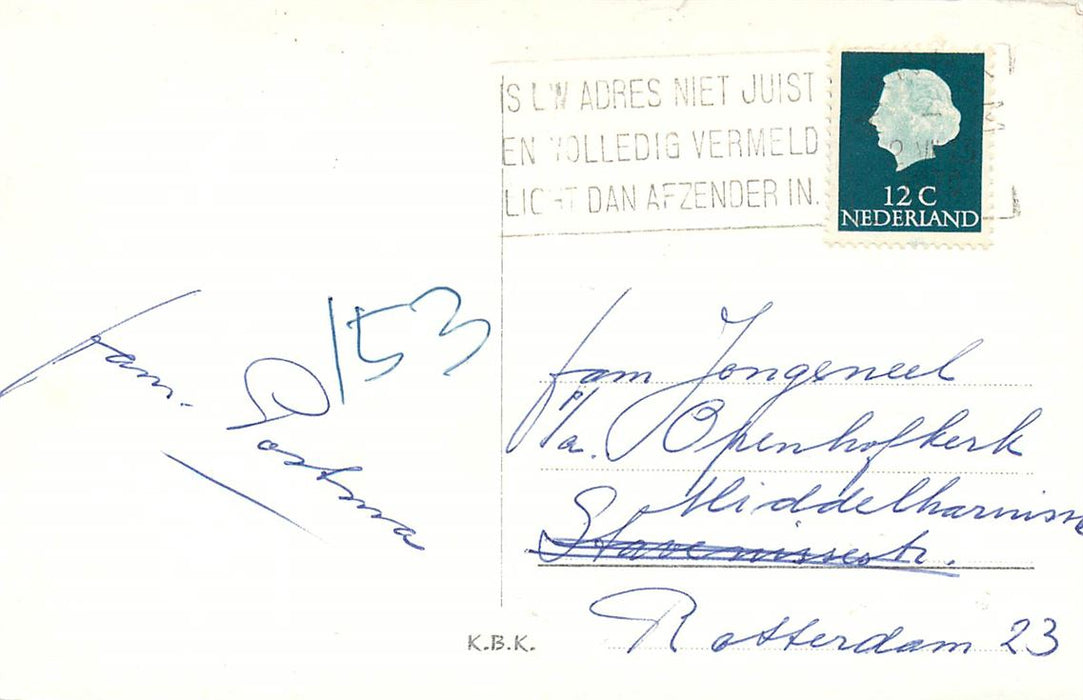 IS UW ADRES NIET JUIST
EN VOLLEDIG VERMELD
LICHT DAN AFZENDER IN.
12 C
NEDERLAND
153
fam. Postma
fam Jongeneel
p/a. Openhofkerk
Middelharnisse
Stavenissestr.
Rotterdam 23
K.B.K.